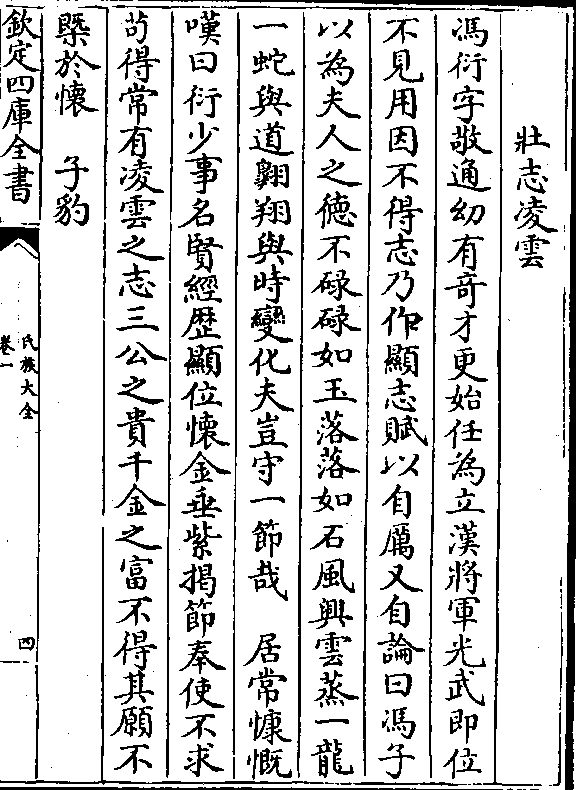 壯志凌雲
馮衍字敬通幼有竒才更始任為立漢將軍光武即位
不見用因不得志乃作顯志賦以自厲又自論曰馮子
以為夫人之徳不碌碌如玉落落如石風興雲蒸一龍
一蛇與道翺翔與時變化夫豈守一節哉　居常慷慨
嘆曰衍少事名賢經歴顯位懷金垂紫揭節奉使不求
茍得常有凌雲之志三公之貴千金之富不得其願不
槩於懷　子豹
欽定四庫全書
氏族大全
卷一
四